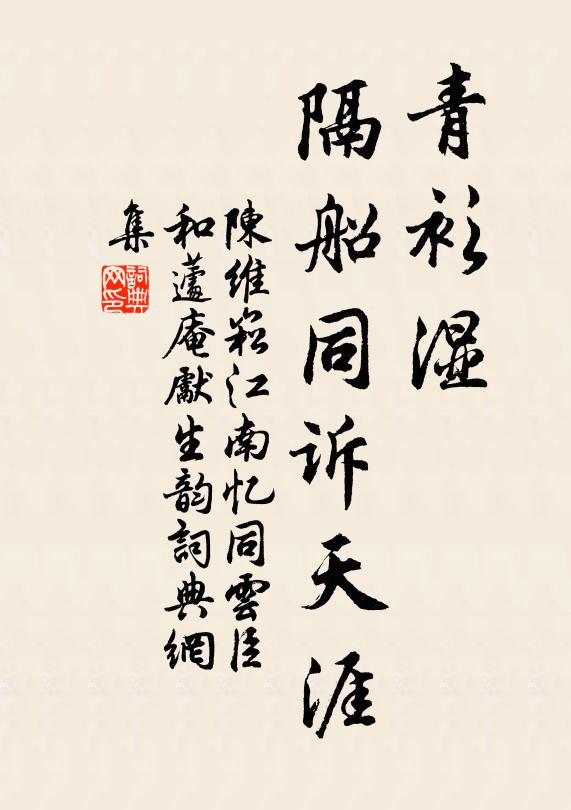 青衫湿
隔船同诉天涯
陳維崧江南忆同雲臣
和蘧庵獻生韵詞典網
集
詞典网印